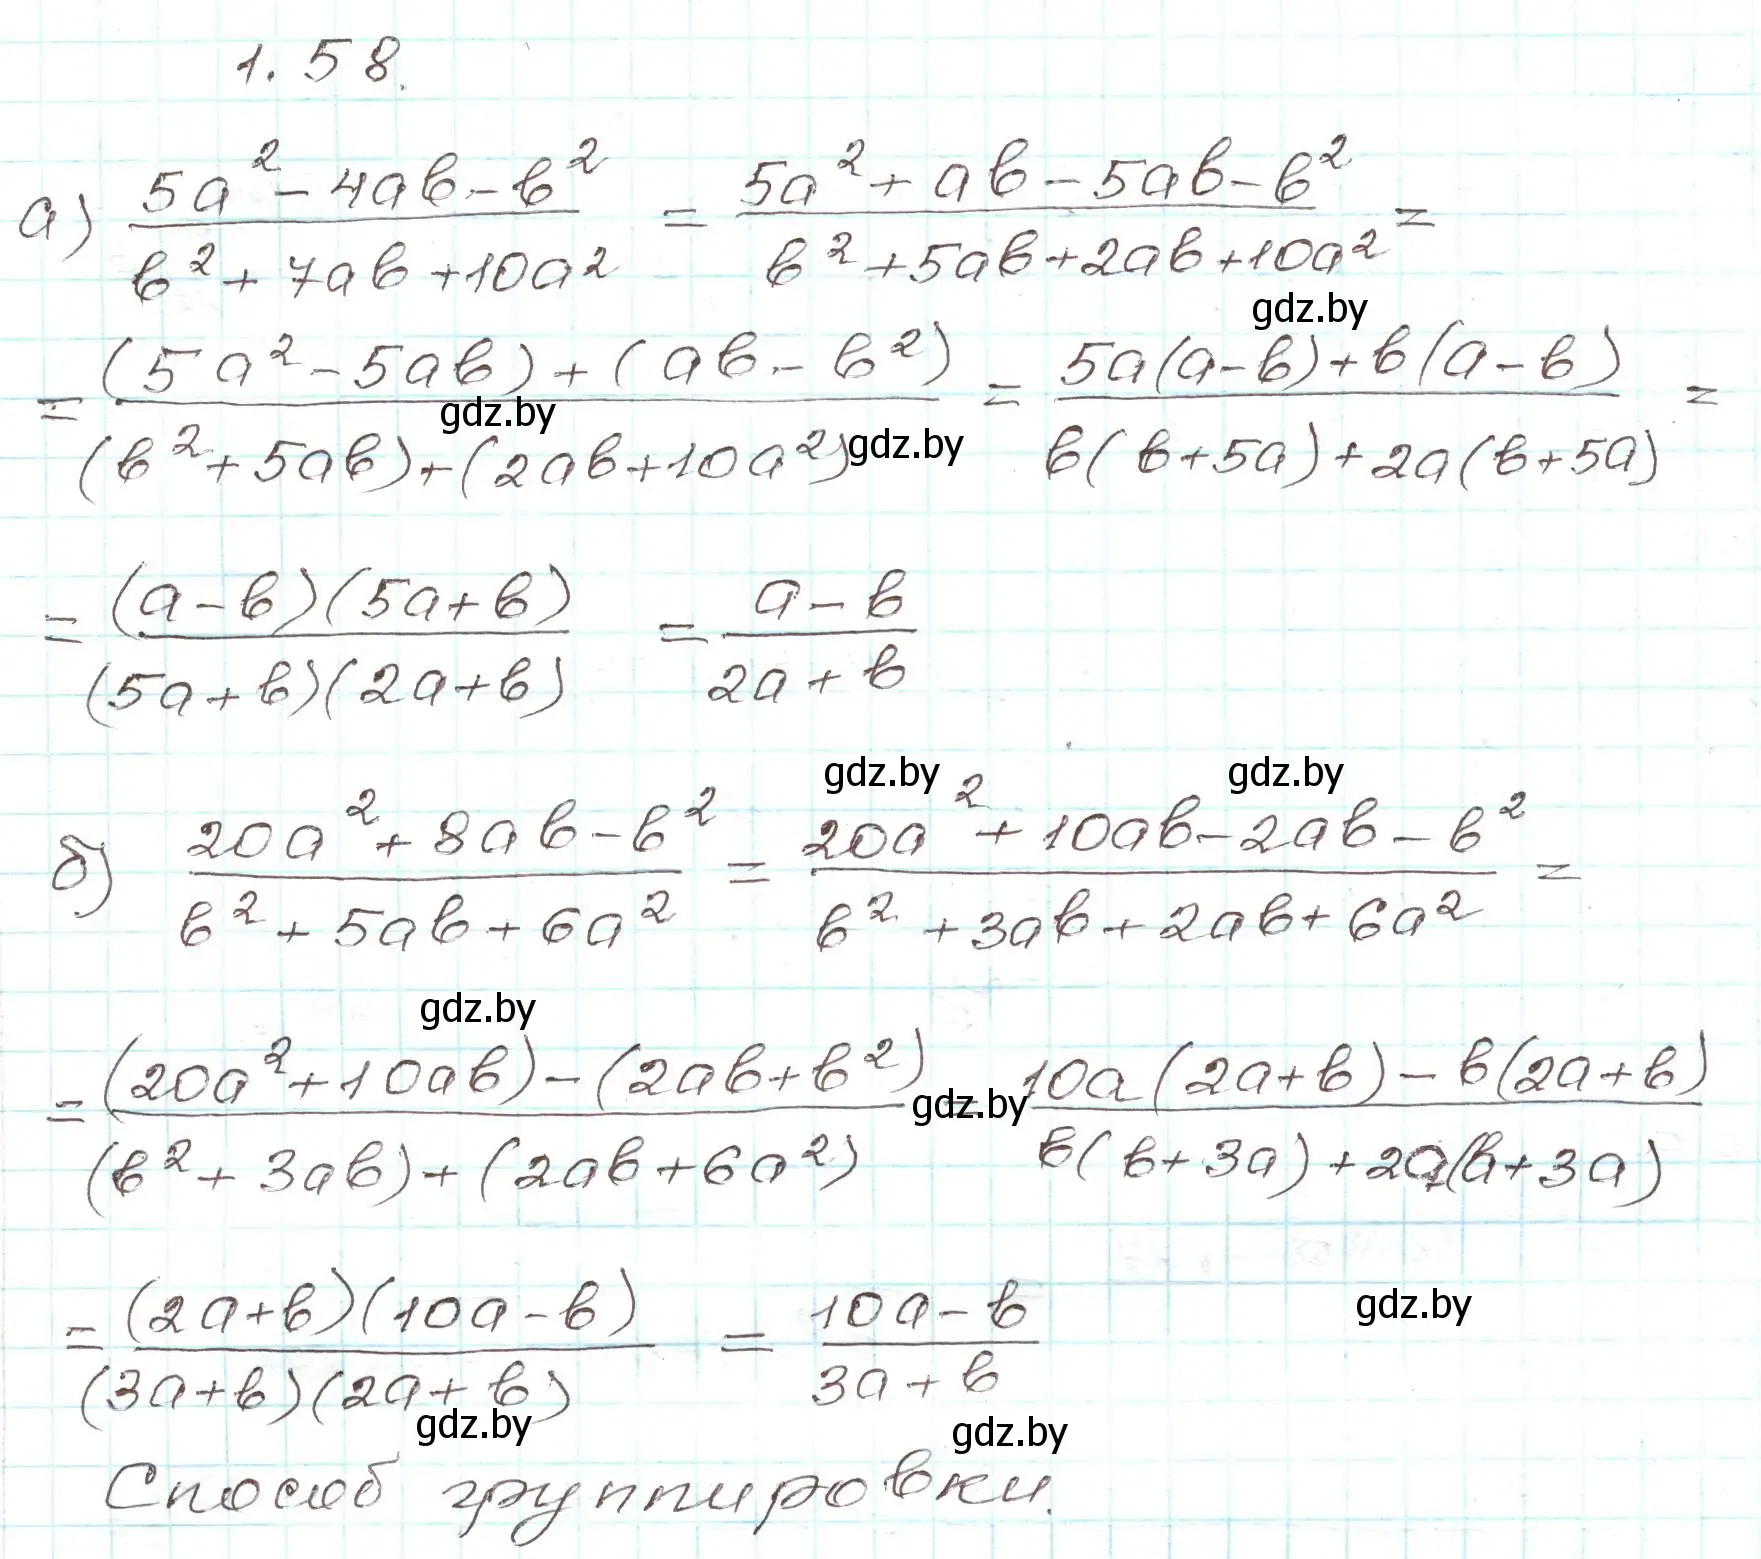 1.58.
а) (5a² - 4ab - b²)/(b² + 7ab + 10a²) = (5a² + ab - 5ab - b²)/(b² + 5ab + 2ab + 10a²) =
gdz.by
= ((5a² - 5ab) + (ab - b²))/((b² + 5ab) + (2ab + 10a²)) = (5a(a - b) + b(a - b))/(b(b + 5a) + 2a(b + 5a)) =
gdz.by gdz.by
= ((a - b)(5a + b))/((5a + b)(2a + b)) = (a - b)/(2a + b)
gdz.by gdz.by
б) (20a² + 8ab - b²)/(b² + 5ab + 6a²) = (20a² + 10ab - 2ab - b²)/(b² + 3ab + 2ab + 6a²) =
gdz.by
= ((20a² + 10ab) - (2ab + b²))/((b² + 3ab) + (2ab + 6a²)) = (10a(2a + b) - b(2a + b))/(b(b + 3a) + 2a(b + 3a))
gdz.by
= ((2a + b)(10a - b))/((3a + b)(2a + b)) = (10a - b)/(3a + b)
gdz.by
gdz.by gdz.by
Способ группировки.